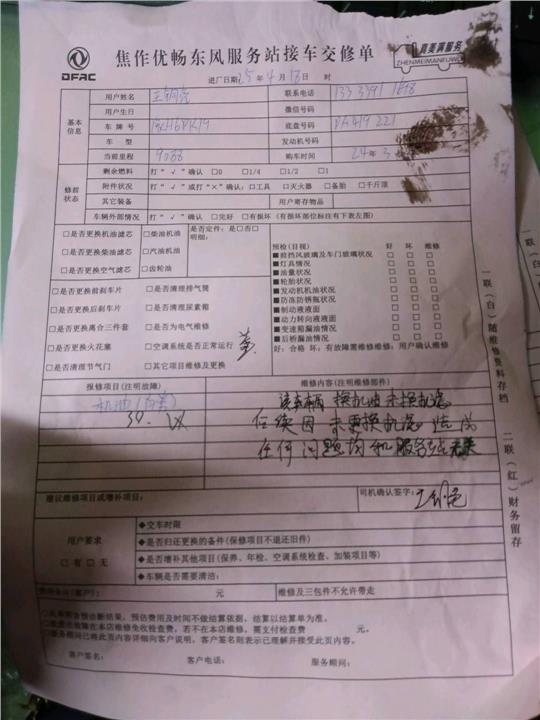 DFAC
焦作优畅东风服务站接车交修单
真美满服务
ZHENMEIMANFUWU
进厂日期25年4月18日 时
基本信息
用户姓名
联系电话
用户生日 微信号码
车牌号 底盘号码
车型 发动机号码
当前里程 购车时间 24年3
修前状态
剩余燃料 打“√”确认 □0 □1/4 □1/2 □1
附件状况 打“√”或打“×”确认:□工具 □灭火器 □备胎 □千斤顶
其它装备 用户寄存物品
车辆外部情况 打“√”确认 □完好 □有损坏(有损坏部位标注有下表左图)
□是否更换机油滤芯 □柴油机油 是否定件:是□否□
明细:
□是否更换柴油滤芯 □汽油机油
□是否更换空气滤芯 □齿轮油
□是否更换前刹车片 □是否清理排气筒
□是否更换后刹车片 □是否清理尿素箱
□是否更换离合三件套 □是否为电气维修
□是否更换火花塞 □空调系统是否正常运行
□是否清理节气门 □其它项目维修及更换
预检(目视) 好 坏 维修
■前挡风玻璃及车门玻璃状况 □ □ □
■灯具情况 □ □ □
■油量状况 □ □ □
■轮胎状况 □ □ □
■发动机机油状况 □ □ □
■防冻防锈瓶状况 □ □ □
■制动液液面 □ □ □
■动力转向液液面 □ □ □
■变速箱漏油情况 □ □ □
■后桥漏油情况 □ □ □
好:合格 坏:有故障需维修维修:用户确认维修
报修项目(注明故障) 维修内容(注明维修部件)
该车辆 换机油未换机滤
后续因未更换机滤造成
任何问题均和服务站无关
建议维修项目或增补项目:
司机确认签字:
用户要求
□有□无
◆交车时限
◆是否归还更换的备件(保修项目不退还旧件)
◆是否增补其他项目(保养、年检、空调系统检查、加装项目等)
◆车辆是否需要清洁:
元 维修及三包件不允许带走
预估费用及时间不做结算依据,结算以结算单为准。
在本店维修免收检查费,若不在本店维修,需支付检查费 元。
服务顾问已将此页内容详细向客户说明,客户签名则表示已理解并接受此页内容。
客户签名: 客户电话: 服务顾问:
一联(白)随维修资料存档
二联(红)财务留存